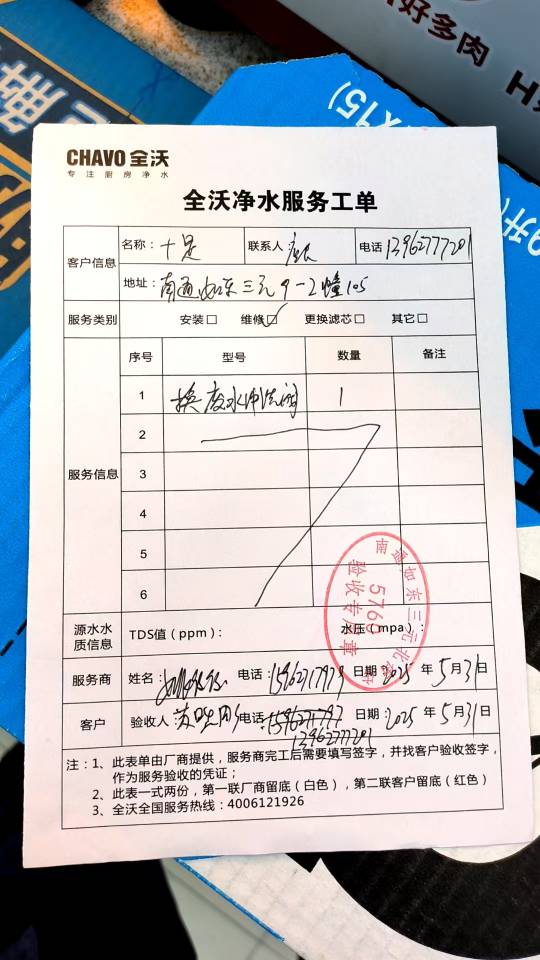 好多肉
解
×15)
CHAVO 全沃
专注厨房净水
全沃净水服务工单
客户信息
名称：十足 联系人 电话 13962777201
地址：南通如东三元9-2幢105
服务类别 安装□ 维修☑ 更换滤芯□ 其它□
服务信息
序号 型号 数量 备注
1 换废水冲洗阀 1
2
3
4
5
6
南通如东三元北
5769
验收专用章
源水水质信息 TDS值（ppm）： 水压（mpa）：
服务商 姓名： 电话：15962717979 日期：2025年5月31日
客户 验收人 电话： 日期：2025年5月31日
13962777201
注：1、此表单由厂商提供，服务商完工后需要填写签字，并找客户验收签字，
作为服务验收的凭证；
2、此表一式两份，第一联厂商留底（白色），第二联客户留底（红色）
3、全沃全国服务热线：4006121926